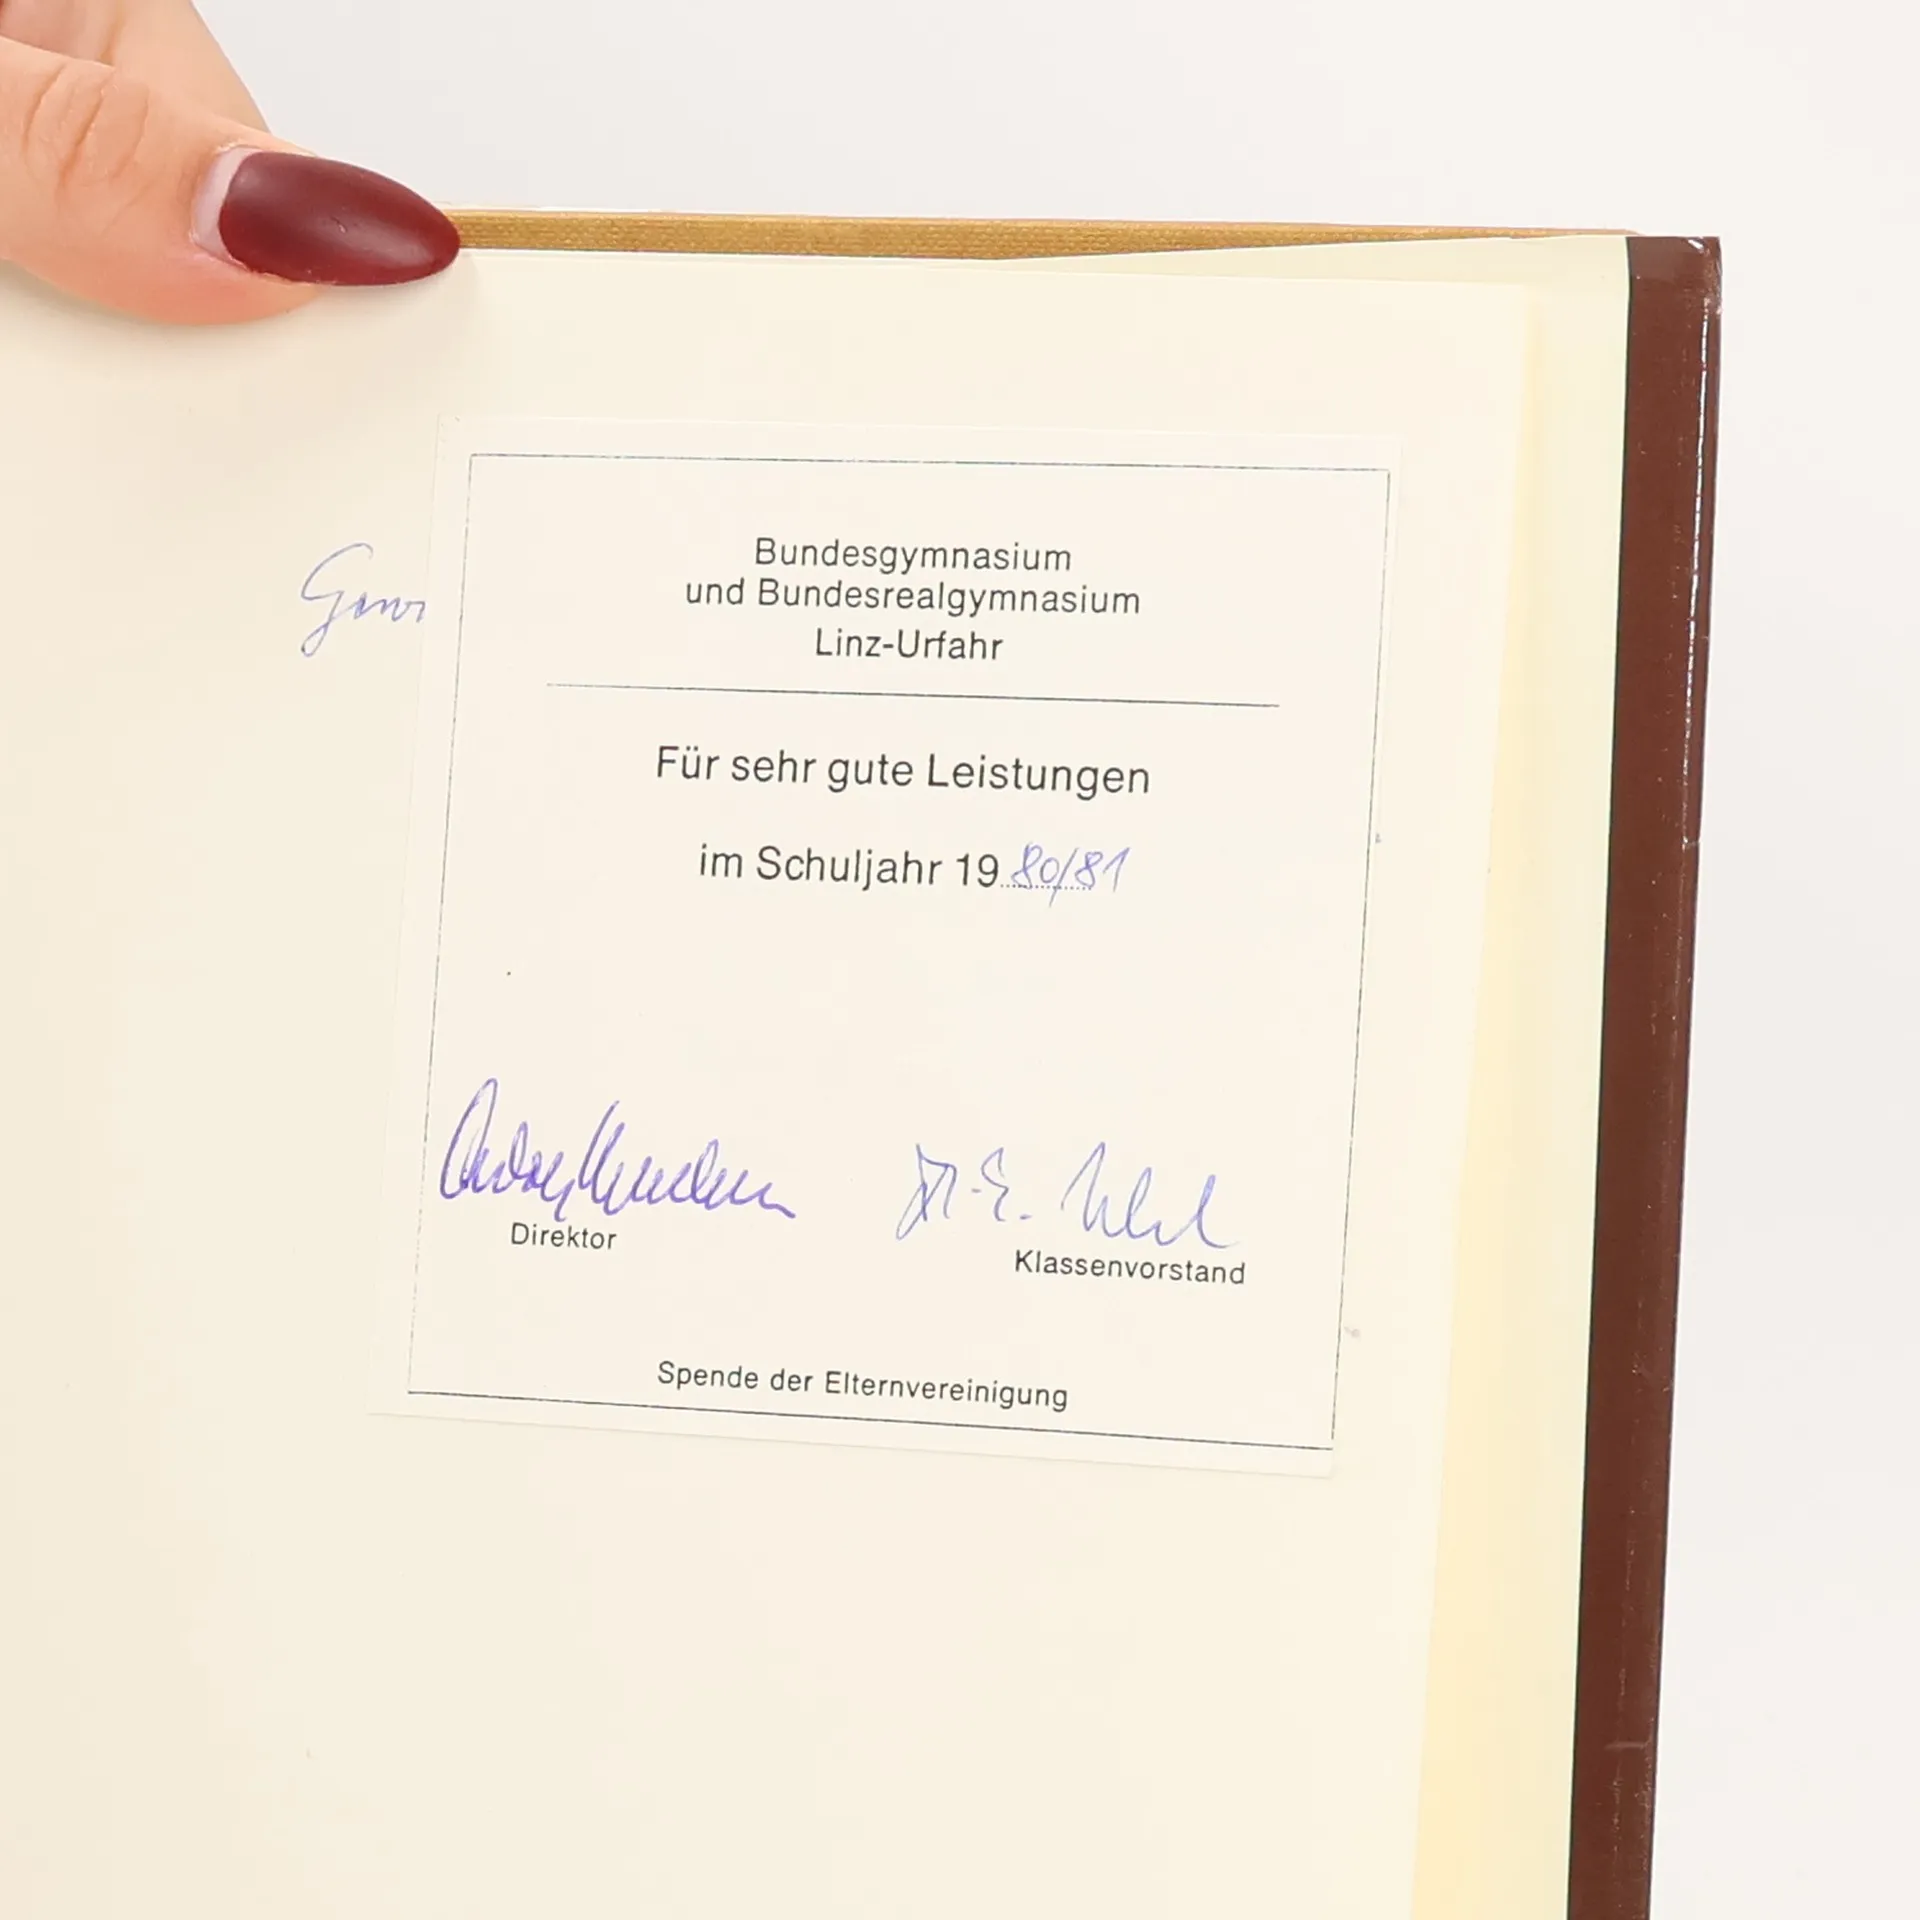 Bundesgymnasium
und Bundesrealgymnasium
Linz-Urfahr
Für sehr gute Leistungen
im Schuljahr 1980/81
Direktor
Klassenvorstand
Spende der Elternvereinigung